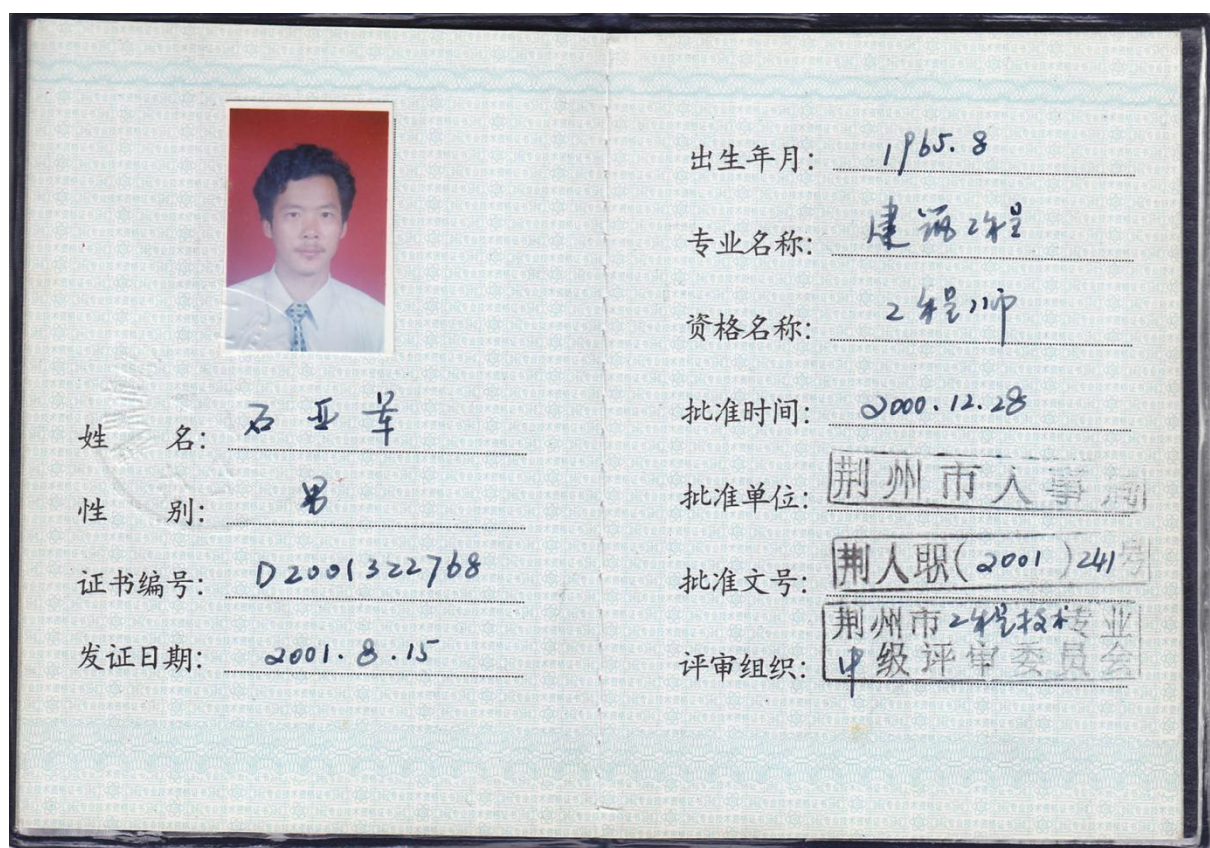 姓 名: 石亚军
性 别: 男
证书编号: D2001322768
发证日期: 2001.8.15
出生年月: 1965.8
专业名称: 建筑工程
资格名称: 工程师
批准时间: 2000.12.28
批准单位: 荆州市人事局
批准文号: 荆人职(2001)241号
评审组织: 荆州市工程技术专业
中级评审委员会